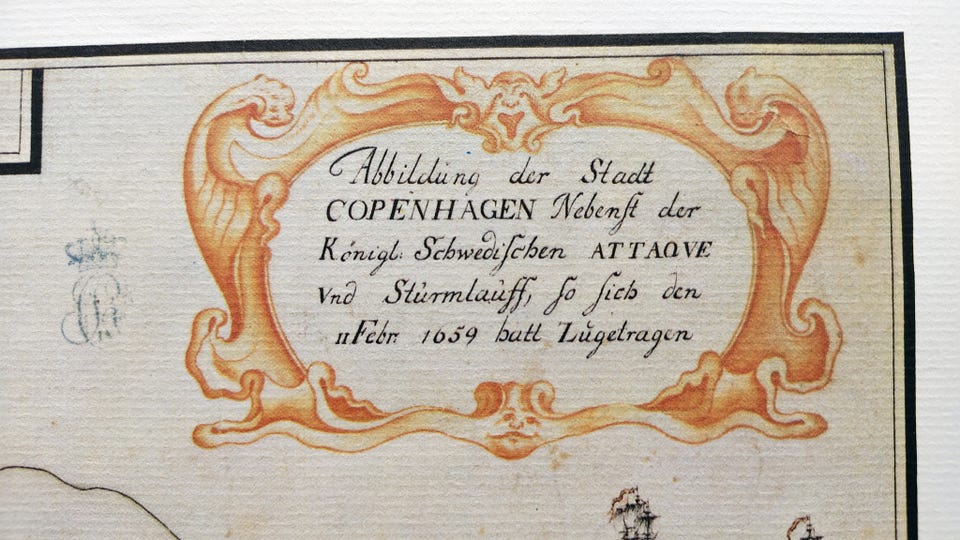 Abbildung der Stadt
COPENHAGEN Nebenſt der
Königl: Schwediſchen ATTAQVE
Vnd Stůrmlaůff, ſo ſich den
11 Febr. 1659 hatt Zůgetragen